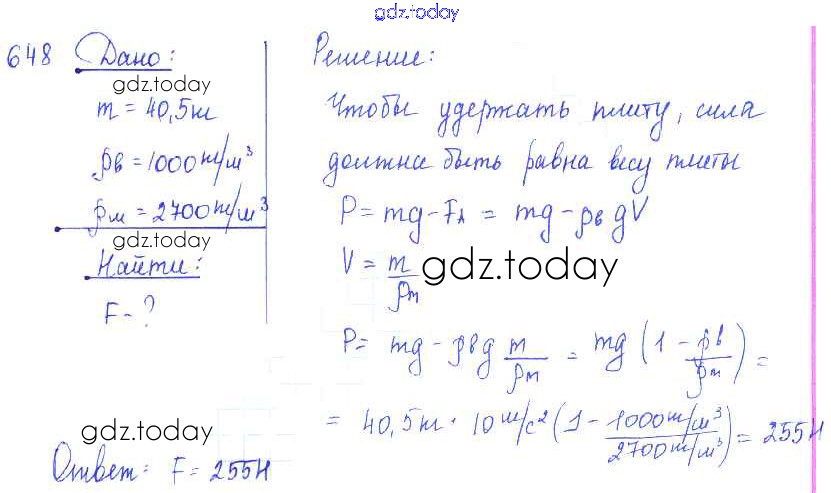 gdz.today
648 Дано:
gdz.today
m = 40,5кг
ρв = 1000 кг/м³
ρм = 2700 кг/м³
gdz.today
Найти:
F - ?
Решение:
Чтобы удержать плиту, сила
должна быть равна весу плиты
P = mg - FA = mg - ρв gV
V = m/ρm gdz.today
P = mg - ρвg m/ρm = mg (1 - ρв/ρm) =
= 40,5кг · 10 м/с² (1 - 1000кг/м³ / 2700 кг/м³) = 255Н
gdz.today
Ответ: F = 255Н